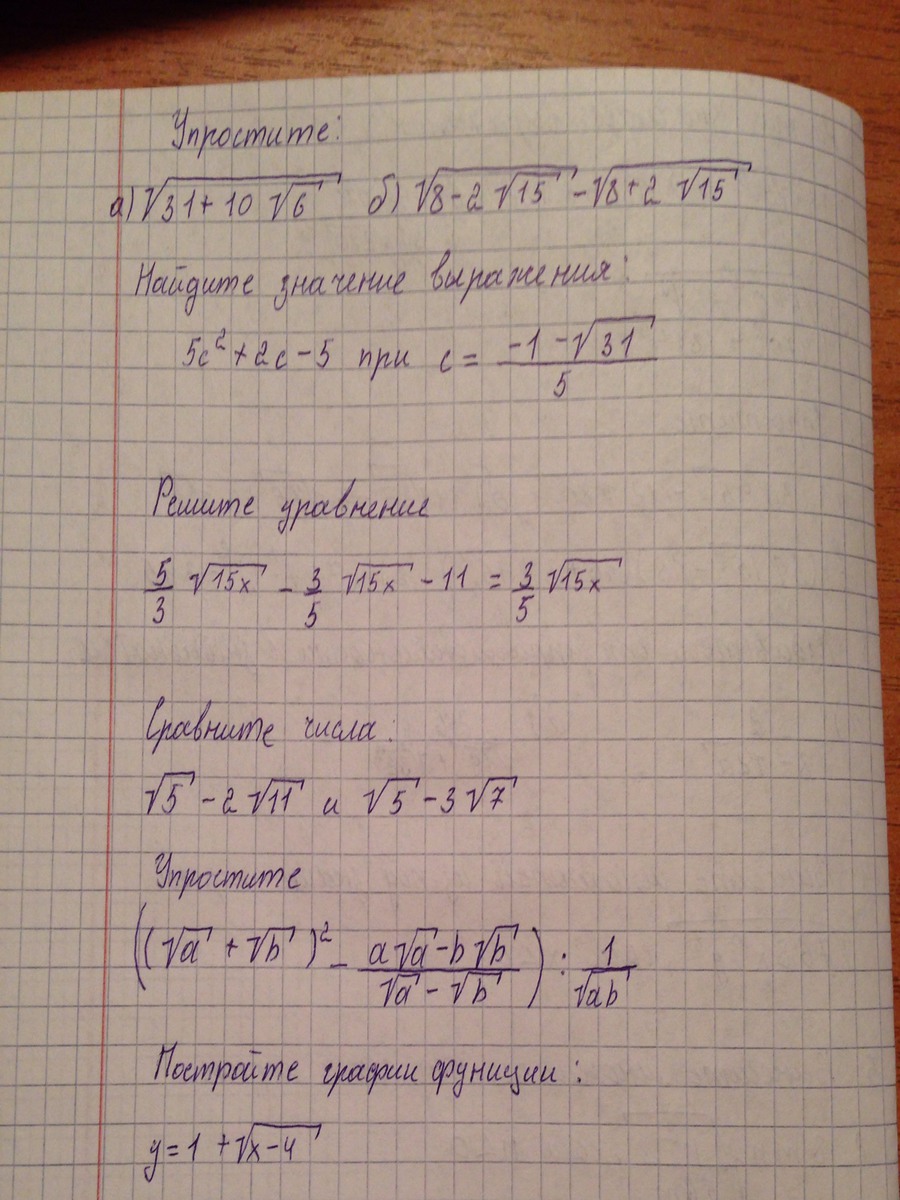 Упростите:
а) √(31+10√6) б) √(8-2√15) - √(8+2√15)
Найдите значение выражения:
5c² + 2c - 5 при c = (-1 - √31)/5
Решите уравнение
5/3 √(15x) - 3/5 √(15x) - 11 = 3/5 √(15x)
Сравните числа:
√5 - 2√11 и √5 - 3√7
Упростите
((√a + √b)² - (a√a - b√b)/(√a - √b)) : 1/√(ab)
Постройте график функции:
y = 1 + √(x-4)